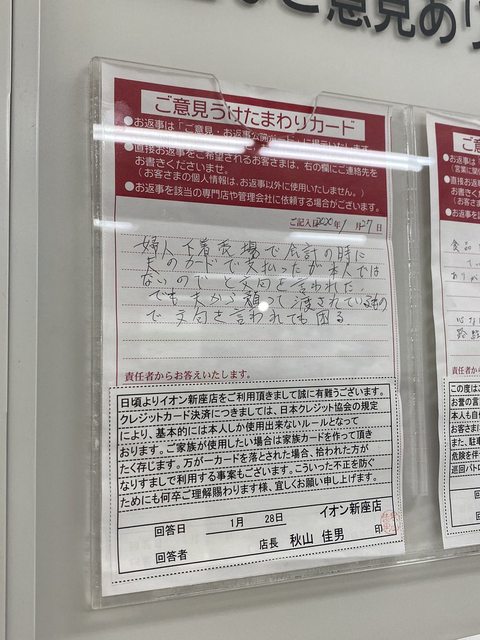 ご意見あり
ご意見うけたまわりカード
●お返事は「ご意見・お返事公開ボード」に掲示いたします。
●直接お返事をご希望されるお客さまは、右の欄にご連絡先を
お書きくださいませ。
(お客さまの個人情報は、お返事以外に使用いたしません。)
●お返事を該当の専門店や管理会社に依頼する場合がございます。
ご記入日2020年1月27日
婦人下着売場で会計の時に
夫のカードで支払ったが本人では
ないのでと文句を言われた。
でも夫から頼って渡されているもの
で文句を言われても困る
責任者からお答えいたします。
日頃よりイオン新座店をご利用頂きまして誠に有難うございます。
クレジットカード決済につきましては、日本クレジット協会の規定
により、基本的には本人しか使用出来ないルールとなって
おります。ご家族が使用したい場合は家族カードを作って頂き
たく存じます。万が一カードを落とされた場合、拾われた方が
なりすまして利用する事案もございます。こういった不正を防ぐ
ためにも何卒ご理解賜わります様、宜しくお願い申し上げます。
イオン新座店
回答日 1月 28日
回答者 店長 秋山 佳男 印
ご意
●お返事は
(言葉に関
●直接お返
お書きく
(お客さ
●お返事を
食品
ありが
路
責任者か
この度は
お誉の言
本人も自
お客さま
また、駐
危険を伴
巡回パトロ
回答
回答